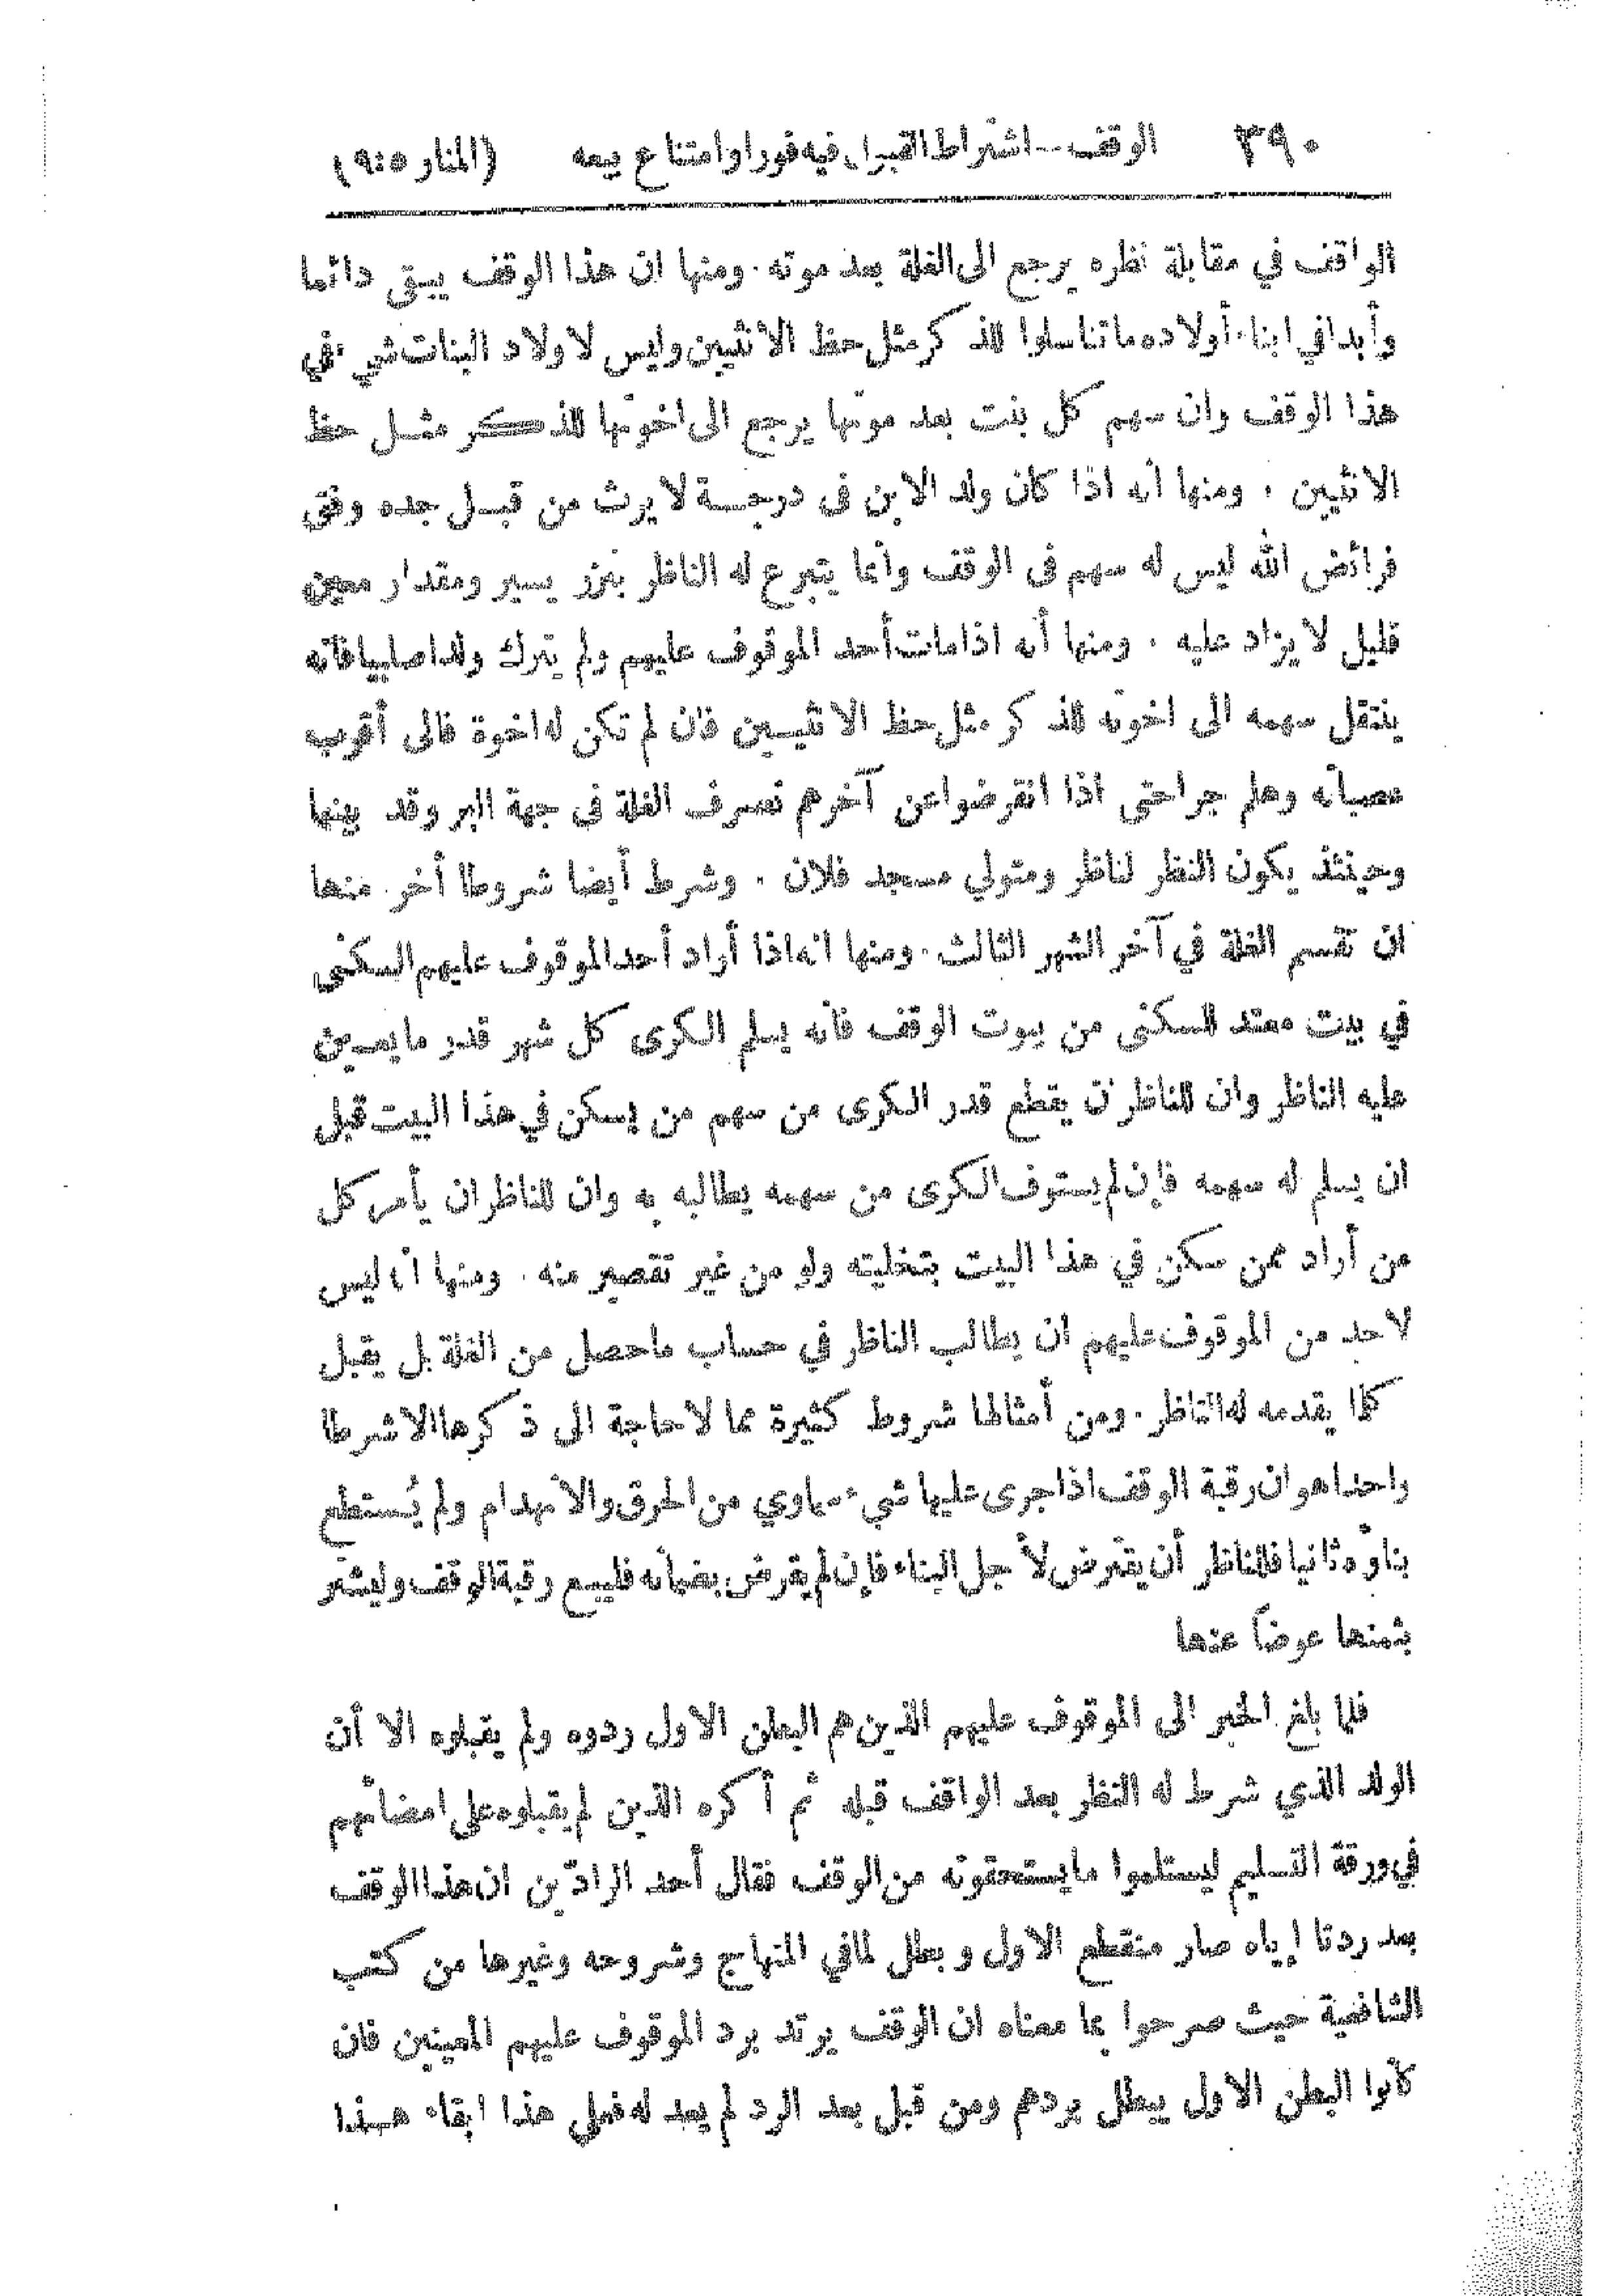 ٣٩٠ الوقف -- اشتراط القبول فيه فورا وامتناع بيعه (المنار ٥:٩)
الواقف في مقابلة نظره يرجع الى الغلة بعد موته . ومنها ان هذا الوقف يبقى دائما
وأبدا في ابناء أولاده ما تناسلوا للذكر مثل حظ الانثيين وليس لاولاد البنات شيء في
هذا الوقف وان سهم كل بنت بعد موتها يرجع الى اخوتها للذكر مثل حظ
الانثيين . ومنها أنه اذا كان ولد الابن في درجة لا يرث من قبل جده وفق
فرائض الله ليس له سهم في الوقف وانما يتبرع له الناظر بنزر يسير ومقدار معين
قليل لا يزاد عليه . ومنها أنه اذا مات أحد الموقوف عليهم ولم يترك ولدا صلبيا فانه
ينتقل سهمه الى اخوته للذكر مثل حظ الانثيين فان لم تكن له اخوة فالى أقرب
عصباته وهلم جرا حتى اذا انقرضوا عن آخرهم تصرف الغلة في جهة البر وقد بينها
وحينئذ يكون النظر لناظر ومتولي مسجد فلان . وشرط أيضا شروطا أخر منها
ان تقسم الغلة في آخر الشهر الثالث . ومنها انه اذا أراد أحد الموقوف عليهم السكنى
في بيت معتد للسكنى من بيوت الوقف فانه يسلم الكرى كل شهر قدر ما يعين
عليه الناظر وان للناظر ن يقطع قدر الكرى من سهم من يسكن في هذا البيت قبل
ان يسلم له سهمه فإن لم يستوف الكرى من سهمه يطالبه به وان للناظر ان يأمر كل
من أراد ممن سكن في هذا البيت بتخليته ولو من غير تقصير منه . ومنها انه ليس
لاحد من الموقوف عليهم ان يطالب الناظر في حساب ما حصل من الغلة بل يقبل
كلما يقدمه له الناظر . ومن أمثالها شروط كثيرة مما لا حاجة الى ذكرها الا شرطا
واحدا هو ان رقبة الوقف اذا جرى عليها شيء سماوي من الحرق والانهدام ولم يُستطع
بناؤه ثانيا فللناظر أن يقترض لأجل البناء فإن لم يقرض بضمانه فليبع رقبة الوقف وليشتر
بثمنها عوضاً عنها
فلما بلغ الخبر الى الموقوف عليهم الذين هم البطن الاول ردوه ولم يقبلوه الا أن
الولد الذي شرط له النظر بعد الواقف قبله ثم أكره الذين لم يقبلوه على امضائهم
في ورقة التسليم ليستلموا ما يستحقونه من الوقف فقال أحد الرادّين ان هذا الوقف
بعد ردنا إياه صار منقطع الاول وبطل لما في المنهاج وشروحه وغيرها من كتب
الشافعية حيث صرحوا بما معناه ان الوقف يرتد برد الموقوف عليهم المعينين فان
كانوا البطن الاول يبطل بردهم ومن قبل بعد الرد لم يعد له فعلى هذا ابقاء هذا